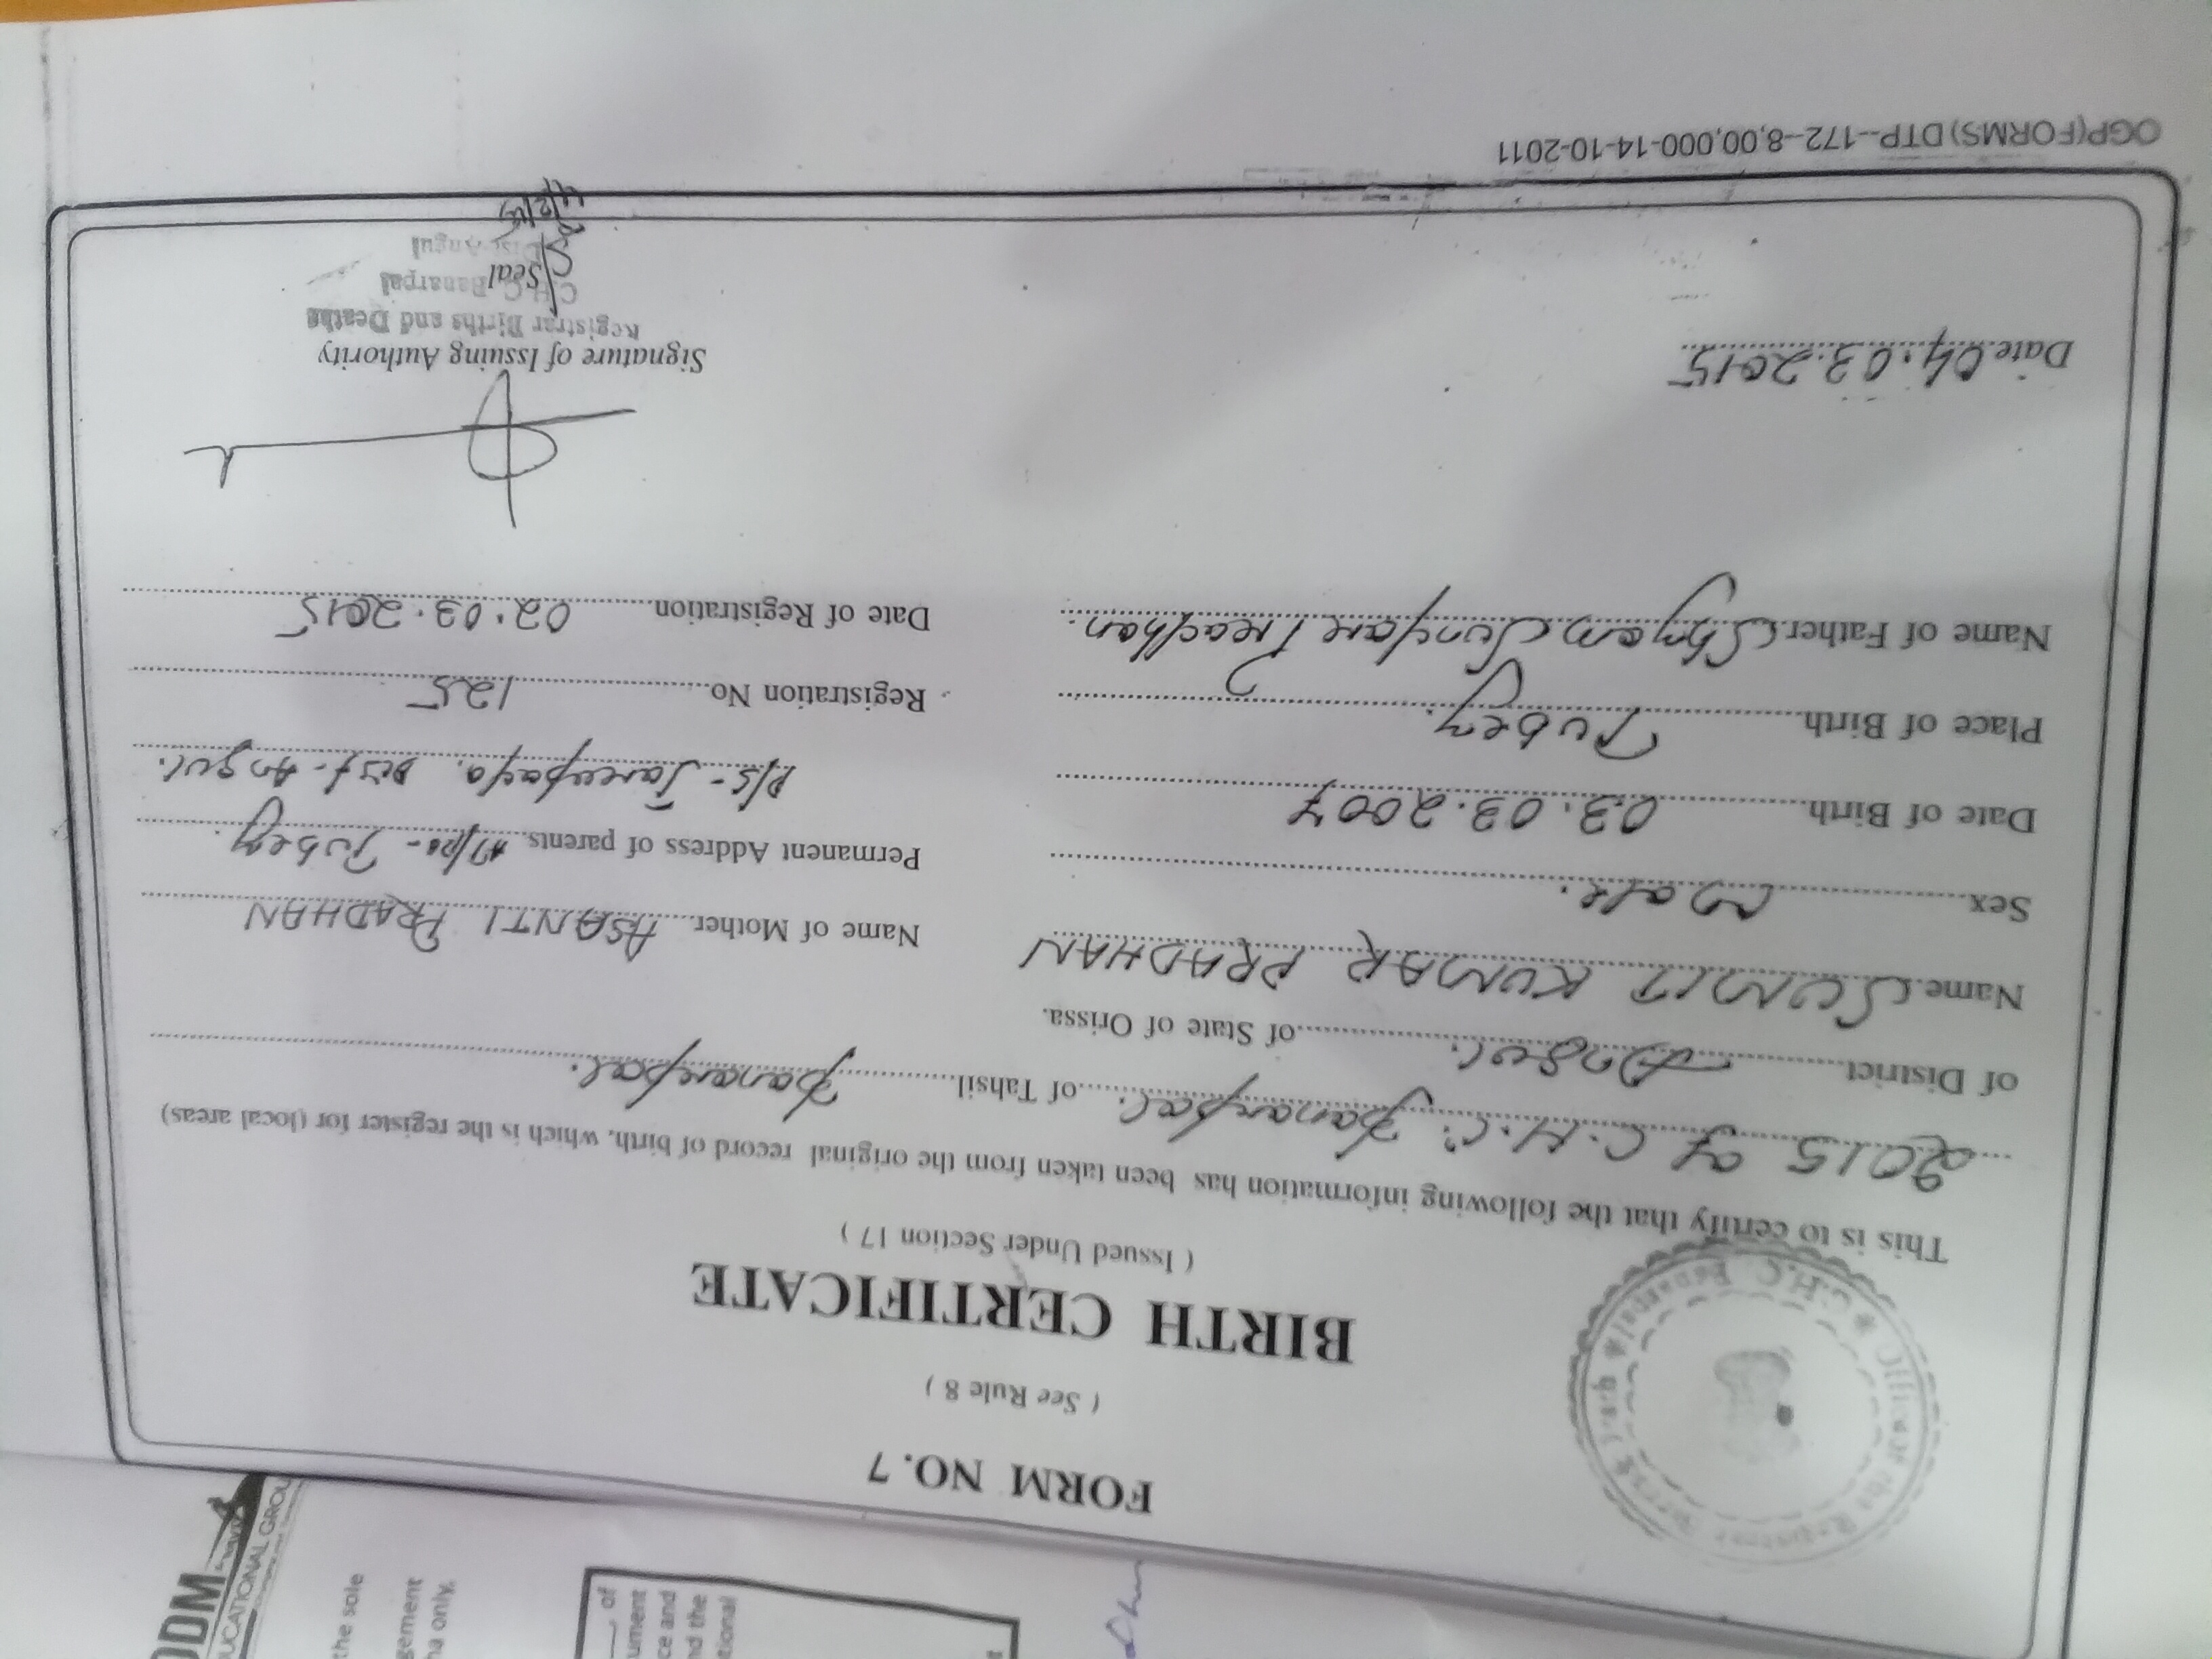 FORM NO. 7
( See Rule 8 )
BIRTH CERTIFICATE
( Issued Under Section 17 )
This is to certify that the following information has been taken from the original record of birth, which is the register for (local areas)
2015 of C.H.C. Banarpal. of Tahsil Banarpal.
of District Angul. of State of Orissa.
Name SUMIT KUMAR PRADHAN
Sex Male.
Date of Birth 03.03.2007
Place of Birth Tubey.
Name of Father Shyam Sundare Pradhan.
Name of Mother ASANTI PRADHAN
Permanent Address of parents At/po- Tubey.
P/S- Jarapada, Dist- Angul.
Registration No. 125
Date of Registration 02.03.2015
Date 04.03.2015
Signature of Issuing Authority
Registrar Births and Deaths
C.H.C. Banarpal
Seal
Dist-Angul
OGP(FORMS) DTP--172--8,00,000-14-10-2011
Office of the Registrar
C.H.C. Banarpal
ODM
EDUCATIONAL GROUP
the sole
only.
of
and the